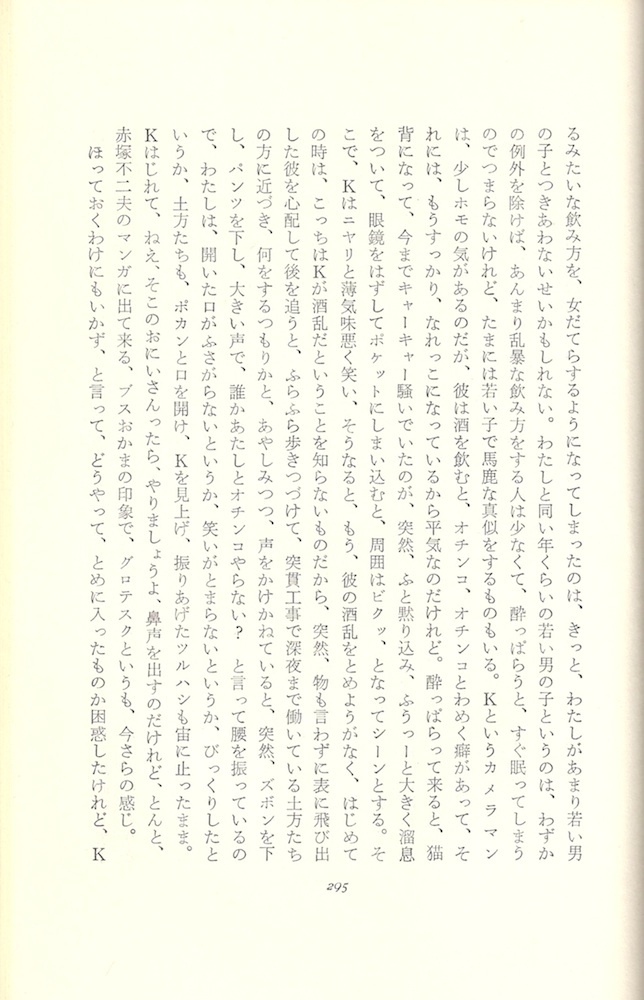 るみたいな飲み方を、女だてらするようになってしまったのは、きっと、わたしがあまり若い男
の子とつきあわないせいかもしれない。わたしと同い年くらいの若い男の子というのは、わずか
の例外を除けば、あんまり乱暴な飲み方をする人は少なくて、酔っぱらうと、すぐ眠ってしまう
のでつまらないけれど、たまには若い子で馬鹿な真似をするものもいる。Kというカメラマン
は、少しホモの気があるのだが、彼は酒を飲むと、オチンコ、オチンコとわめく癖があって、そ
れには、もうすっかり、なれっこになっているから平気なのだけれど。酔っぱらって来ると、猫
背になって、今までキャーキャー騒いでいたのが、突然、ふと黙り込み、ふうっーと大きく溜息
をついて、眼鏡をはずしてポケットにしまい込むと、周囲はビクッ、となってシーンとする。そ
こで、Kはニヤリと薄気味悪く笑い、そうなると、もう、彼の酒乱をとめようがなく、はじめて
の時は、こっちはKが酒乱だということを知らないものだから、突然、物も言わずに表に飛び出
した彼を心配して後を追うと、ふらふら歩きつづけて、突貫工事で深夜まで働いている土方たち
の方に近づき、何をするつもりかと、あやしみつつ、声をかけかねていると、突然、ズボンを下
し、パンツを下し、大きい声で、誰かあたしとオチンコやらない? と言って腰を振っているの
で、わたしは、開いた口がふさがらないというか、笑いがとまらないというか、びっくりしたと
いうか、土方たちも、ポカンと口を開け、Kを見上げ、振りあげたツルハシも宙に止ったまま。
Kはじれて、ねえ、そこのおにいさんったら、やりましょうよ、鼻声を出すのだけれど、とんと、
赤塚不二夫のマンガに出て来る、ブスおかまの印象で、グロテスクというも、今さらの感じ。
ほっておくわけにもいかず、と言って、どうやって、とめに入ったものか困惑したけれど、K
295